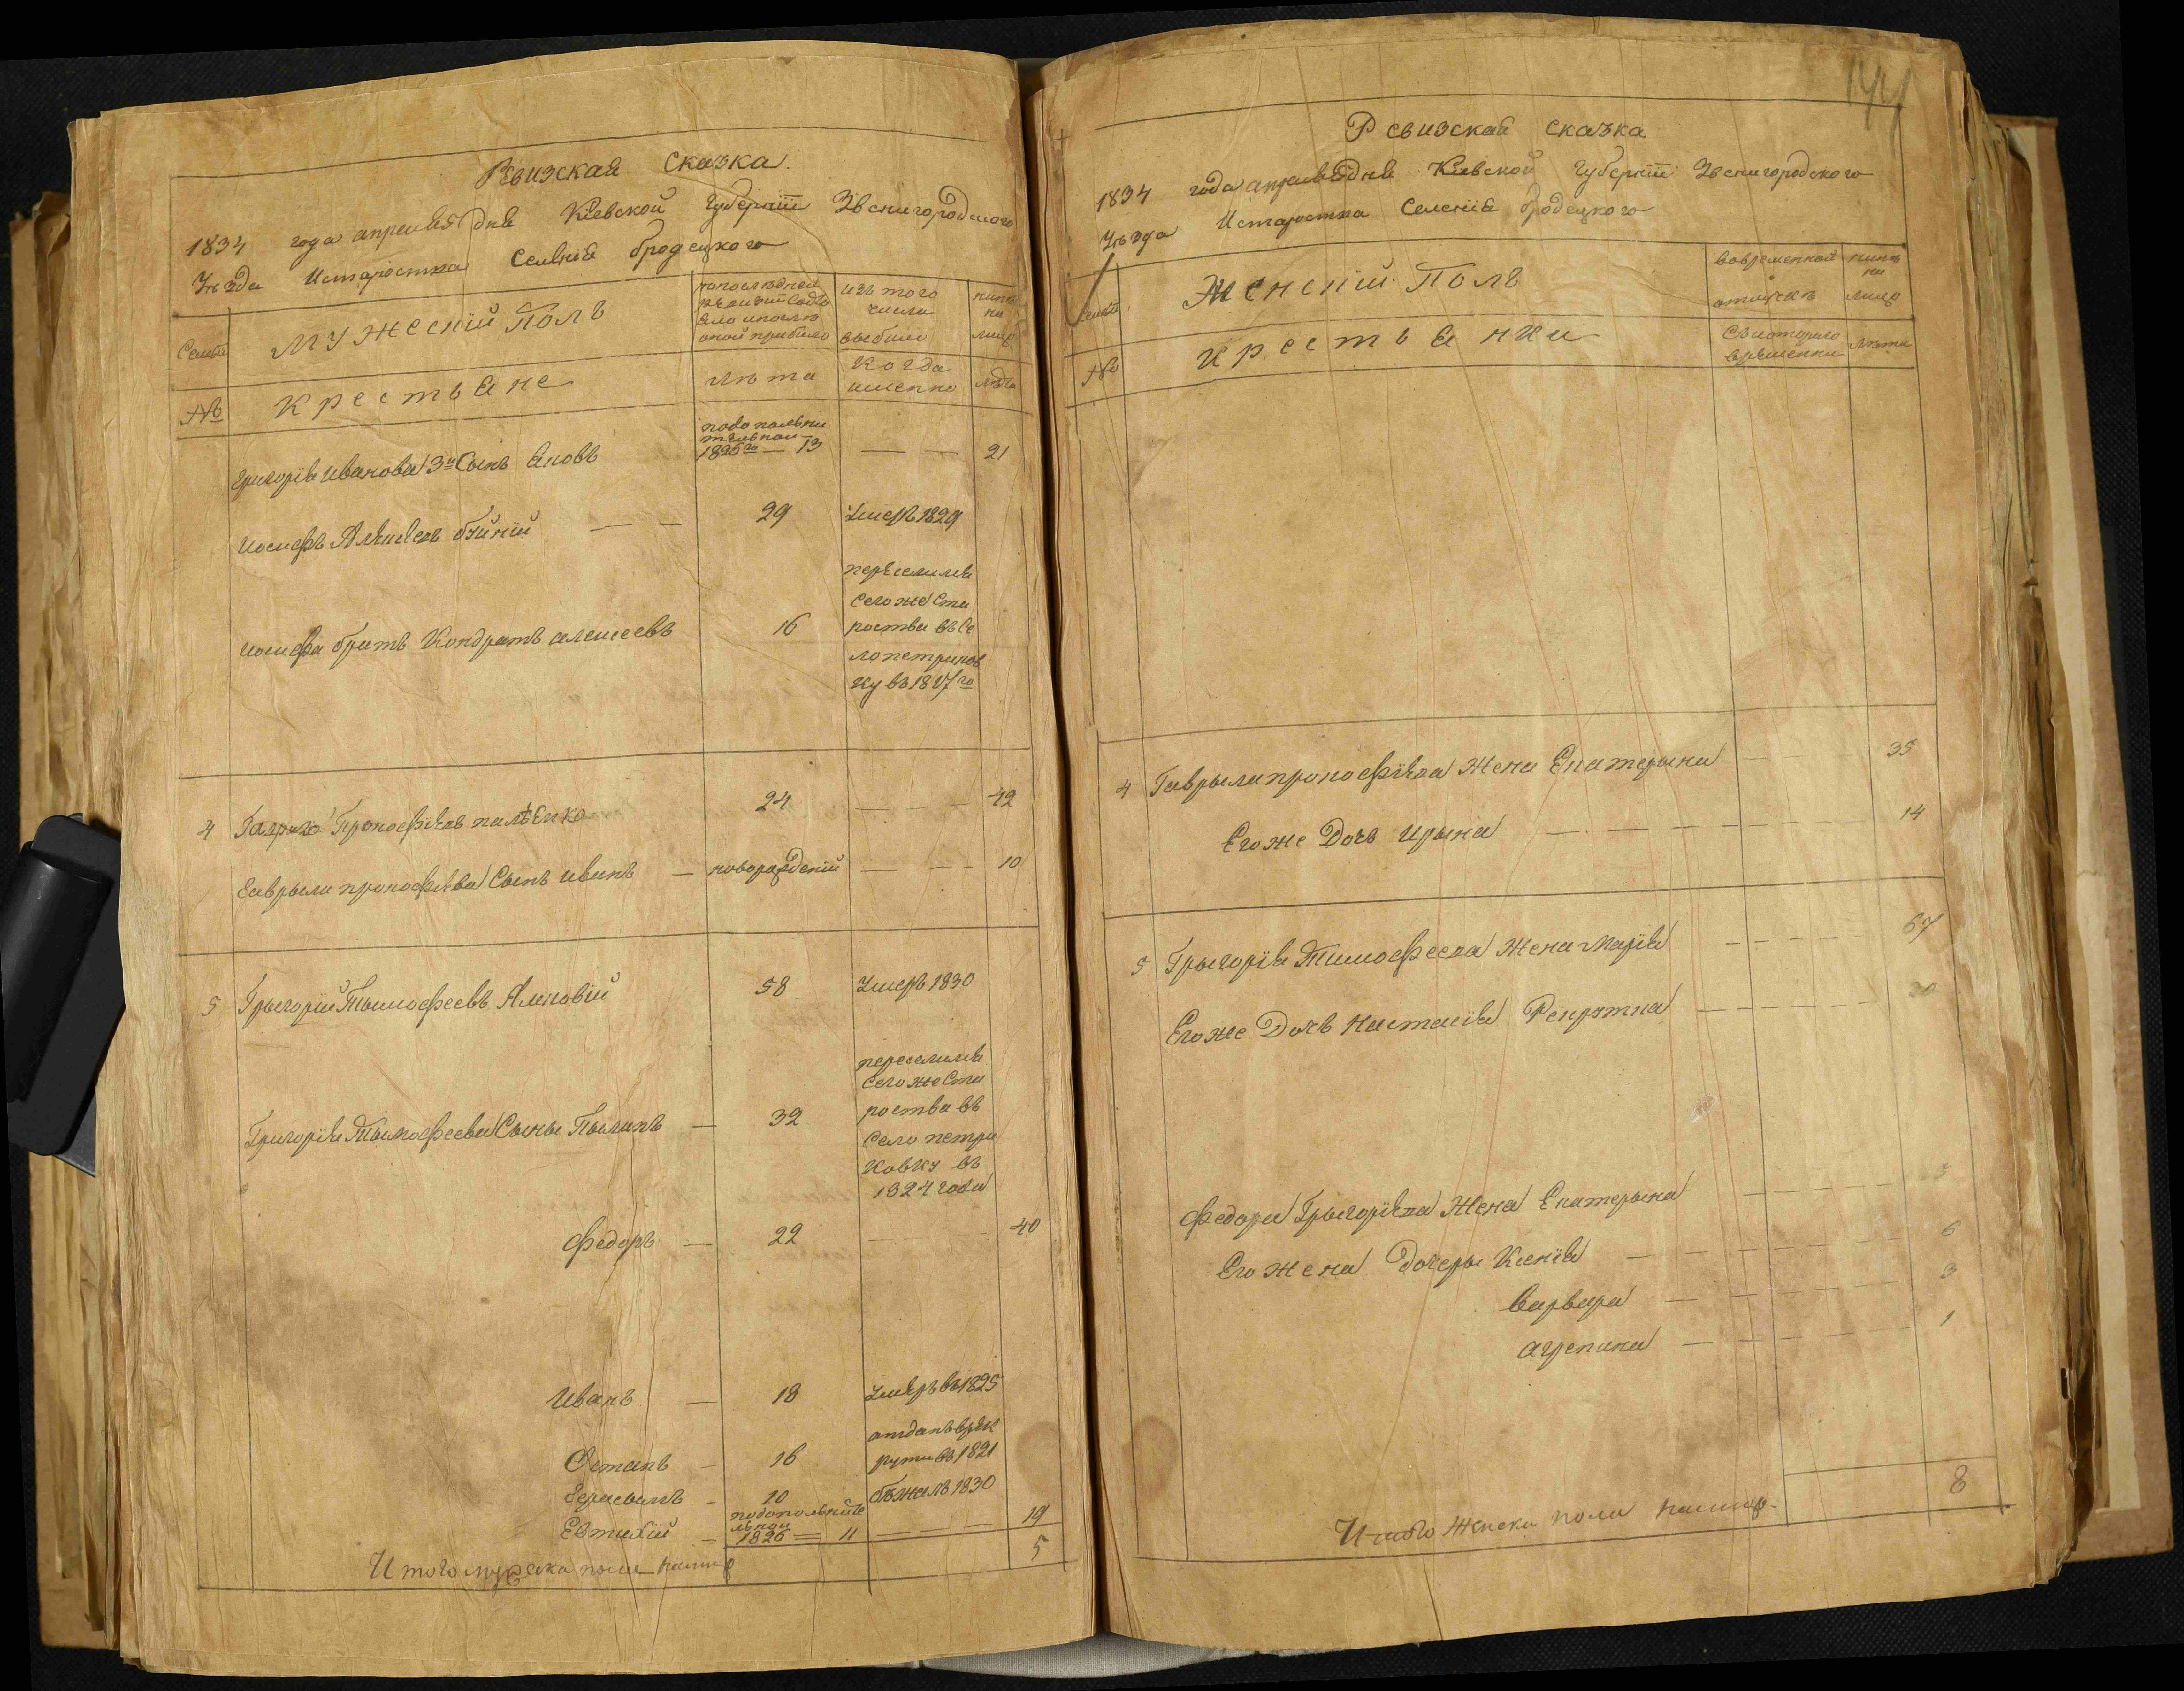 Ревизская Сказка.
1834 года апреля 25 Дня Кіевской Губерніи Звенигородского
Уѣзда Истаростка Селенія бродецкого
Семьи
Мужескій Полъ
попослѣдней
ревизіи Состо
яло ипослѣ
оной прибыло
изъ того
числа
выбыло
нынѣ
на
лицо
№
Крестьяне
лѣта
Когда
именно
лѣта
Григорія Иванова 3й Сынъ Яковъ
подополни
тельной
1826го — 13 — — 21
Иосифъ Алексеевъ — — 29 Умеръ 1829
Иосифа братъ Кондратъ алексеевъ 16
переселился
Сегоже Ста
роства въ Се
ло петриков
ку въ 1817го
4 Гаврило Прокофіевъ 24 — — — 42
Гаврыла прокофіева Сынъ иванъ — новорожденій — — — 10
5 Грыгорій Тымофеевъ 58 Умеръ 1830
Григорія Тымофеева Сыны Пылипъ — 32
переселился
Сегоже Ста
роства въ
Село петри
ковку въ
1824 года
Федоръ — 22 — — — 40
Иванъ — 18 Умеръ въ 1825
Остапъ — 16
отданъ врек
руты въ 1821
Герасымъ — 10 бѣжалъ 1830
Евтихій —
подополните
льной
1826 — 11 — — — 19
Итого мужска пола налицо 5
144
Ревизская сказка
1834 года апреля 25 Дня Кіевской Губерніи Звенигородского
Уѣзда Истаростка Селенія бродецкого
Семьи
Женскій Полъ
вовременной
отлучкѣ
нынѣ
на
лицо
№
Крестьянки
Съкоторого
времени
лѣта
4 Гаврыла прокофіева Жена Екатерына — — — 35
Егоже Дочь Ирына — — — 14
5 Грыгорія Тимофеева Жена Марія — — — 67
Егоже Дочь Настасія Рекрутка — — — 20
Федора Грыгоріева Жена Екатерына — — —
Его жена Дочеры Ксенія — — — 6
Варвара — — — 3
агрепина — — — 1
Итого Женска пола налицо 8